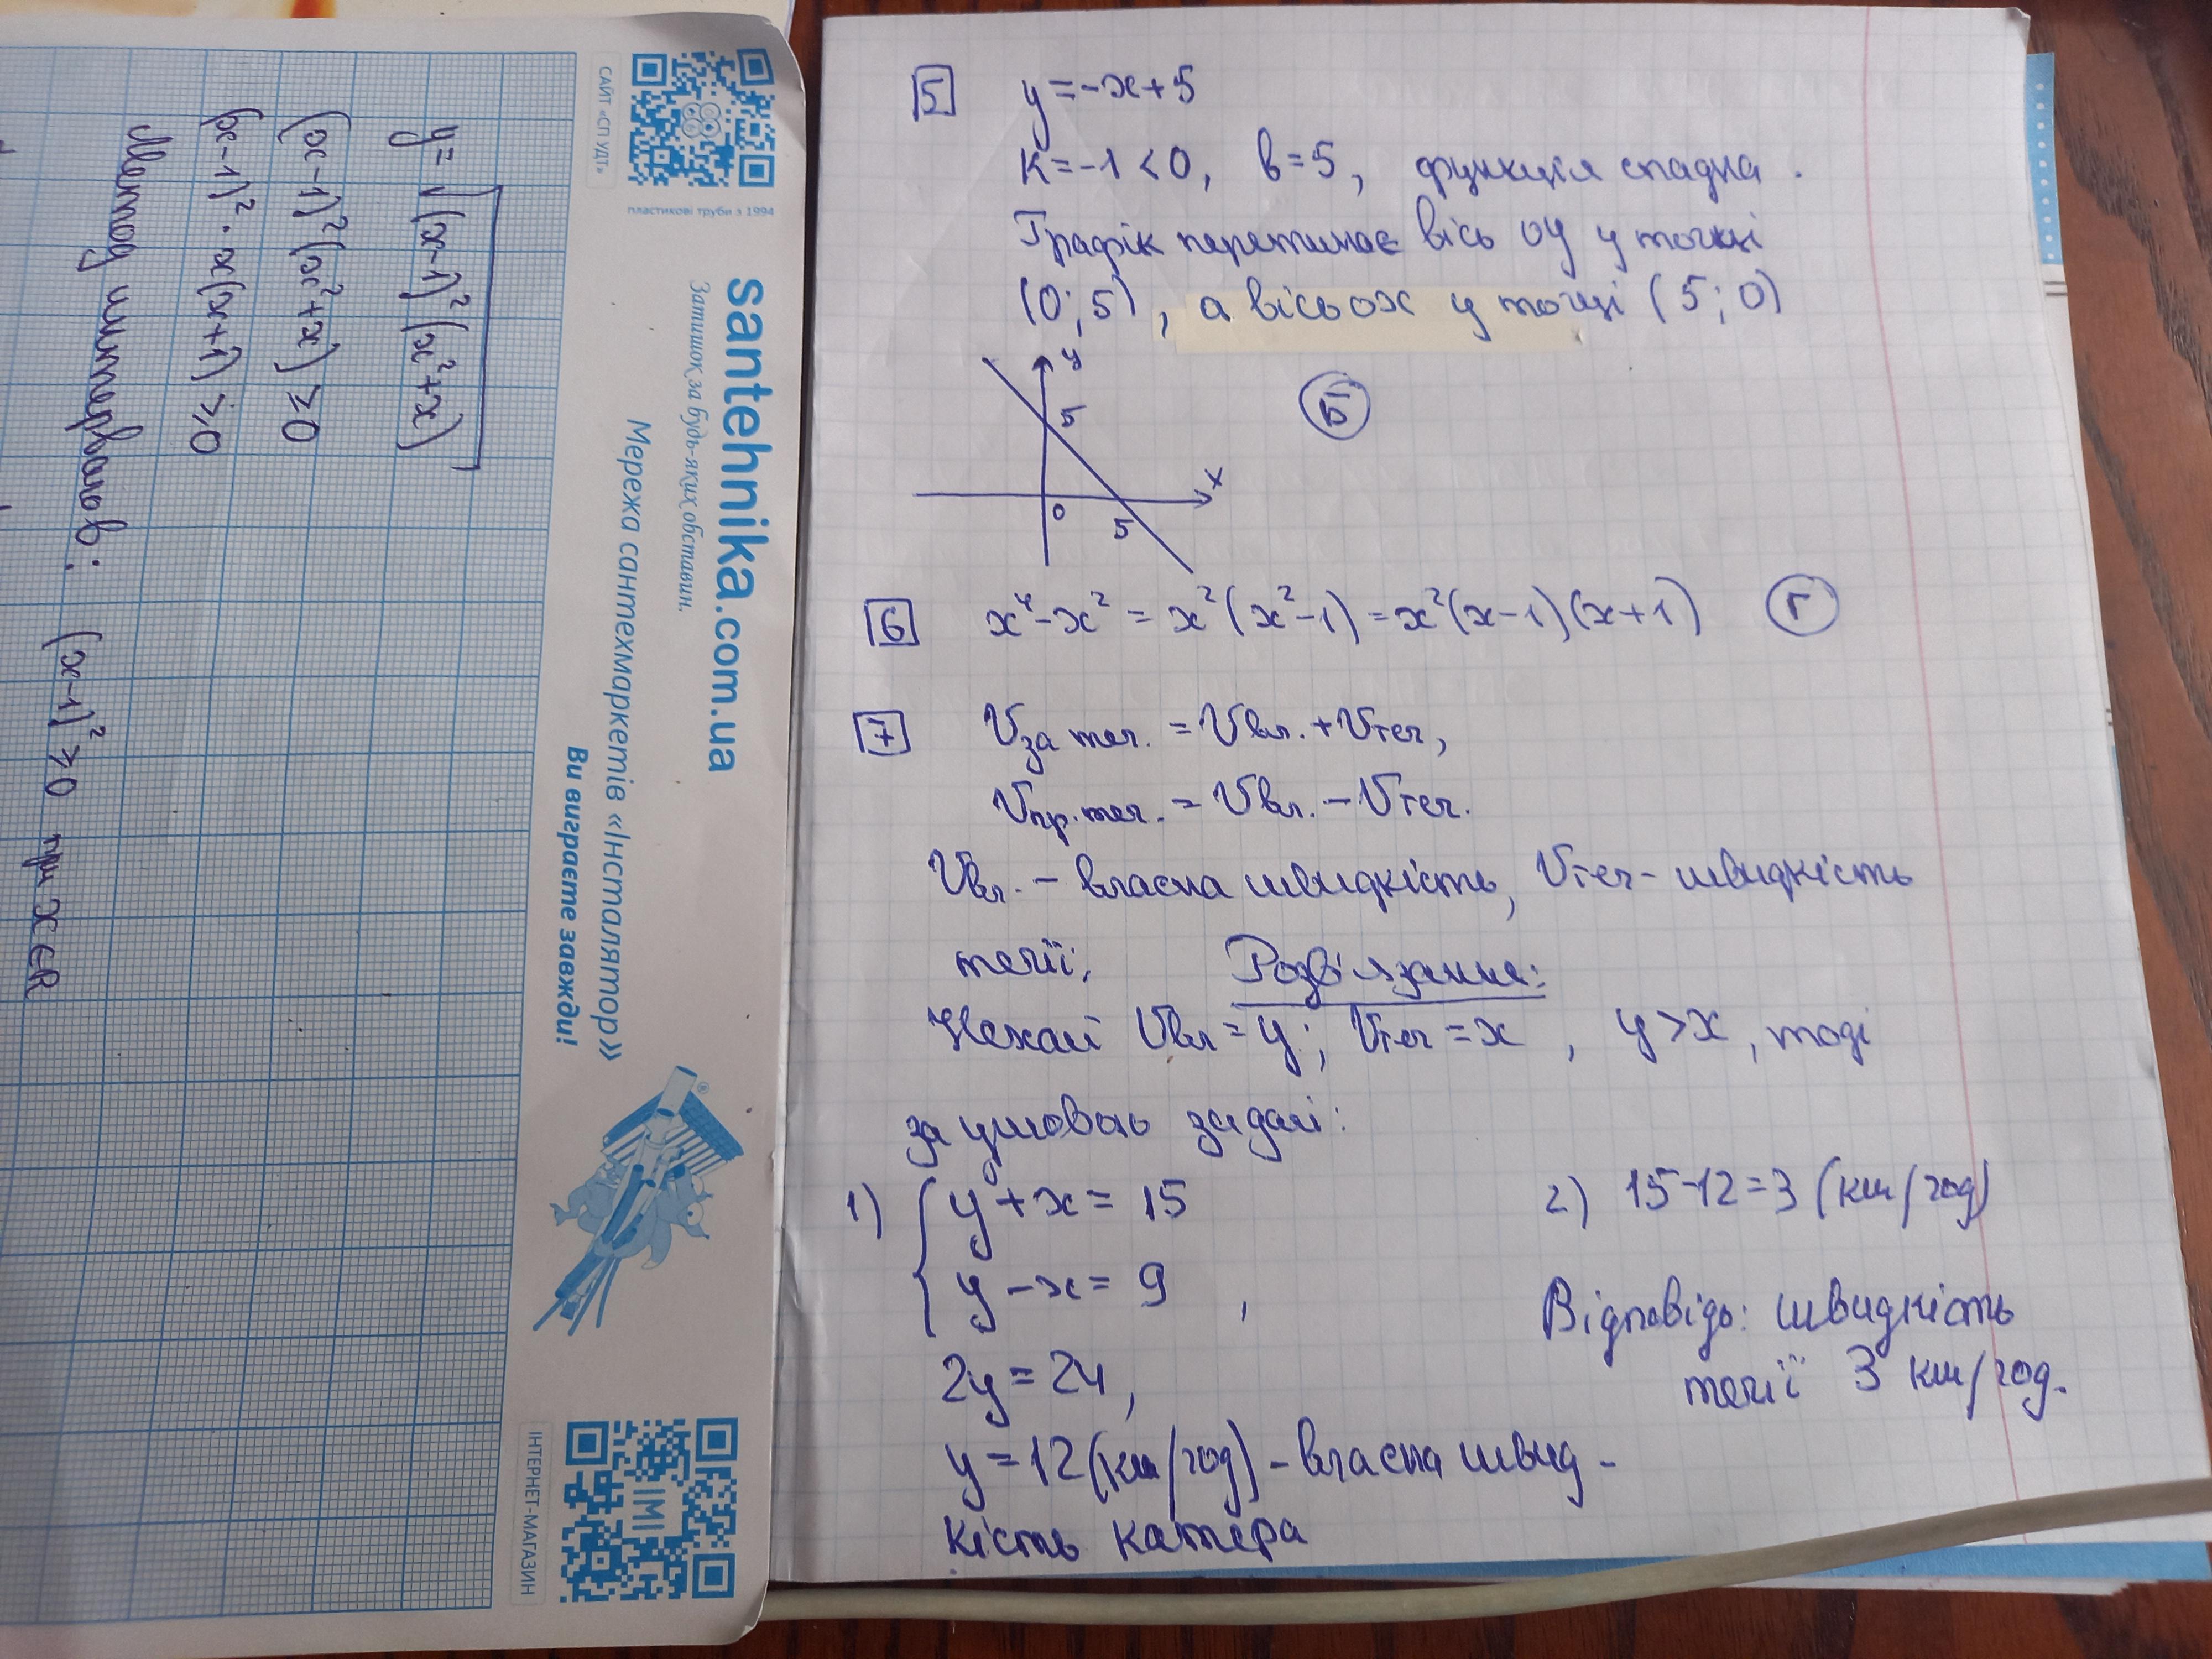 y = √((x-1)²(x²+x))
(x-1)²(x²+x) ≥ 0
(x-1)² · x(x+1) ≥ 0
Метод интервалов:
(x-1)² ≥ 0 при x∈R
САЙТ «СП УДТ»
пластикові труби з 1994
santehnika.com.ua
Затишок за будь-яких обставин.
Мережа сантехмаркетів «Інсталятор»
Ви виграєте завжди!
®
ІМІ
ІНТЕРНЕТ-МАГАЗИН
5 y = -x + 5
k = -1 < 0, b = 5, функція спадна.
Графік перетинає вісь оу у точці
(0; 5), а вісь ох у точці (5; 0)
y
5
x
0
5
Б
6 x⁴ - x² = x²(x² - 1) = x²(x - 1)(x + 1) Г
7 Vза теч. = Vвл. + Vтеч,
Vпр. теч. = Vвл. - Vтеч.
Vвл. - власна швидкість, Vтеч - швидкість
течії; Розв'язання:
Нехай Vвл = y; Vтеч = x, y > x, тоді
за умовою задачі:
1) { y + x = 15
y - x = 9 ,
2y = 24,
y = 12 (км/год) - власна швид-
кість катера
2) 15 - 12 = 3 (км/год)
Відповідь: швидкість
течії 3 км/год.